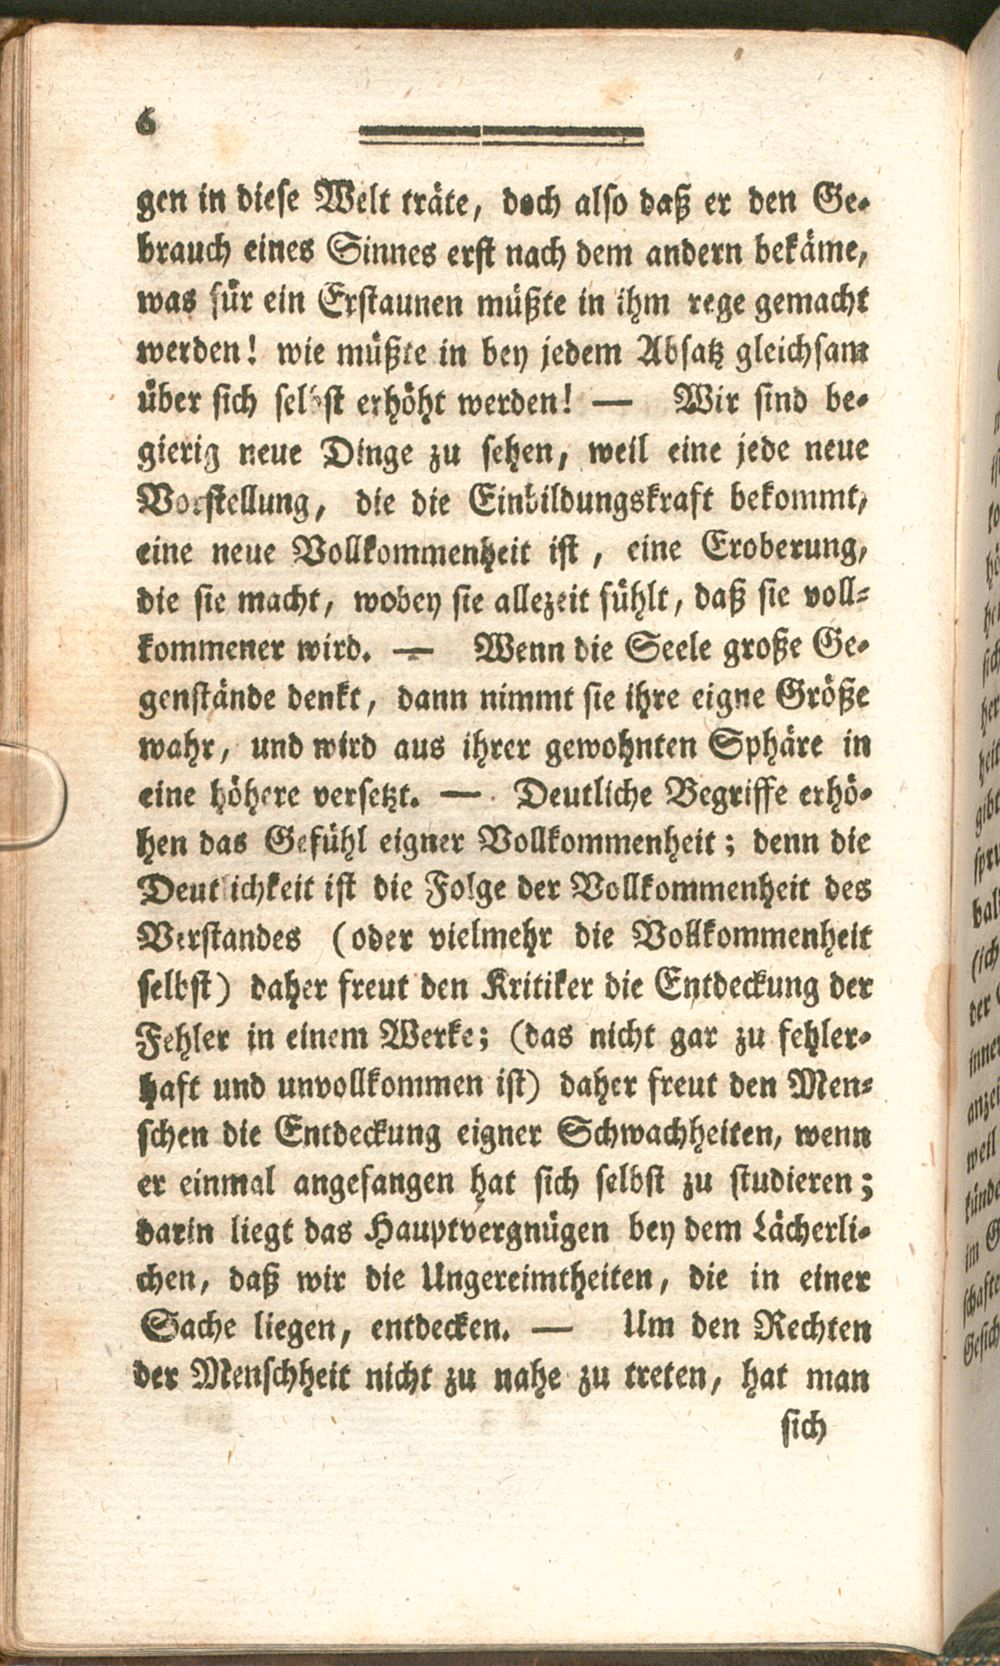 6
gen in diese Welt träte, doch also daß er den Ge-
brauch eines Sinnes erst nach dem andern bekäme,
was für ein Erstaunen müßte in ihm rege gemacht
werden! wie müßte in bey jedem Absatz gleichsam
über sich selbst erhöht werden! — Wir sind be-
gierig neue Dinge zu sehen, weil eine jede neue
Vorstellung, die die Einbildungskraft bekommt,
eine neue Vollkommenheit ist, eine Eroberung,
die sie macht, wobey sie allezeit fühlt, daß sie voll-
kommener wird. — Wenn die Seele große Ge-
genstände denkt, dann nimmt sie ihre eigne Größe
wahr, und wird aus ihrer gewohnten Sphäre in
eine höhere versetzt. — Deutliche Begriffe erhö-
hen das Gefühl eigner Vollkommenheit; denn die
Deutlichkeit ist die Folge der Vollkommenheit des
Verstandes (oder vielmehr die Vollkommenheit
selbst) daher freut den Kritiker die Entdeckung der
Fehler in einem Werke; (das nicht gar zu fehler-
haft und unvollkommen ist) daher freut den Men-
schen die Entdeckung eigner Schwachheiten, wenn
er einmal angefangen hat sich selbst zu studieren;
darin liegt das Hauptvergnügen bey dem Lächerli-
chen, daß wir die Ungereimtheiten, die in einer
Sache liegen, entdecken. — Um den Rechten
der Menschheit nicht zu nahe zu treten, hat man
sich